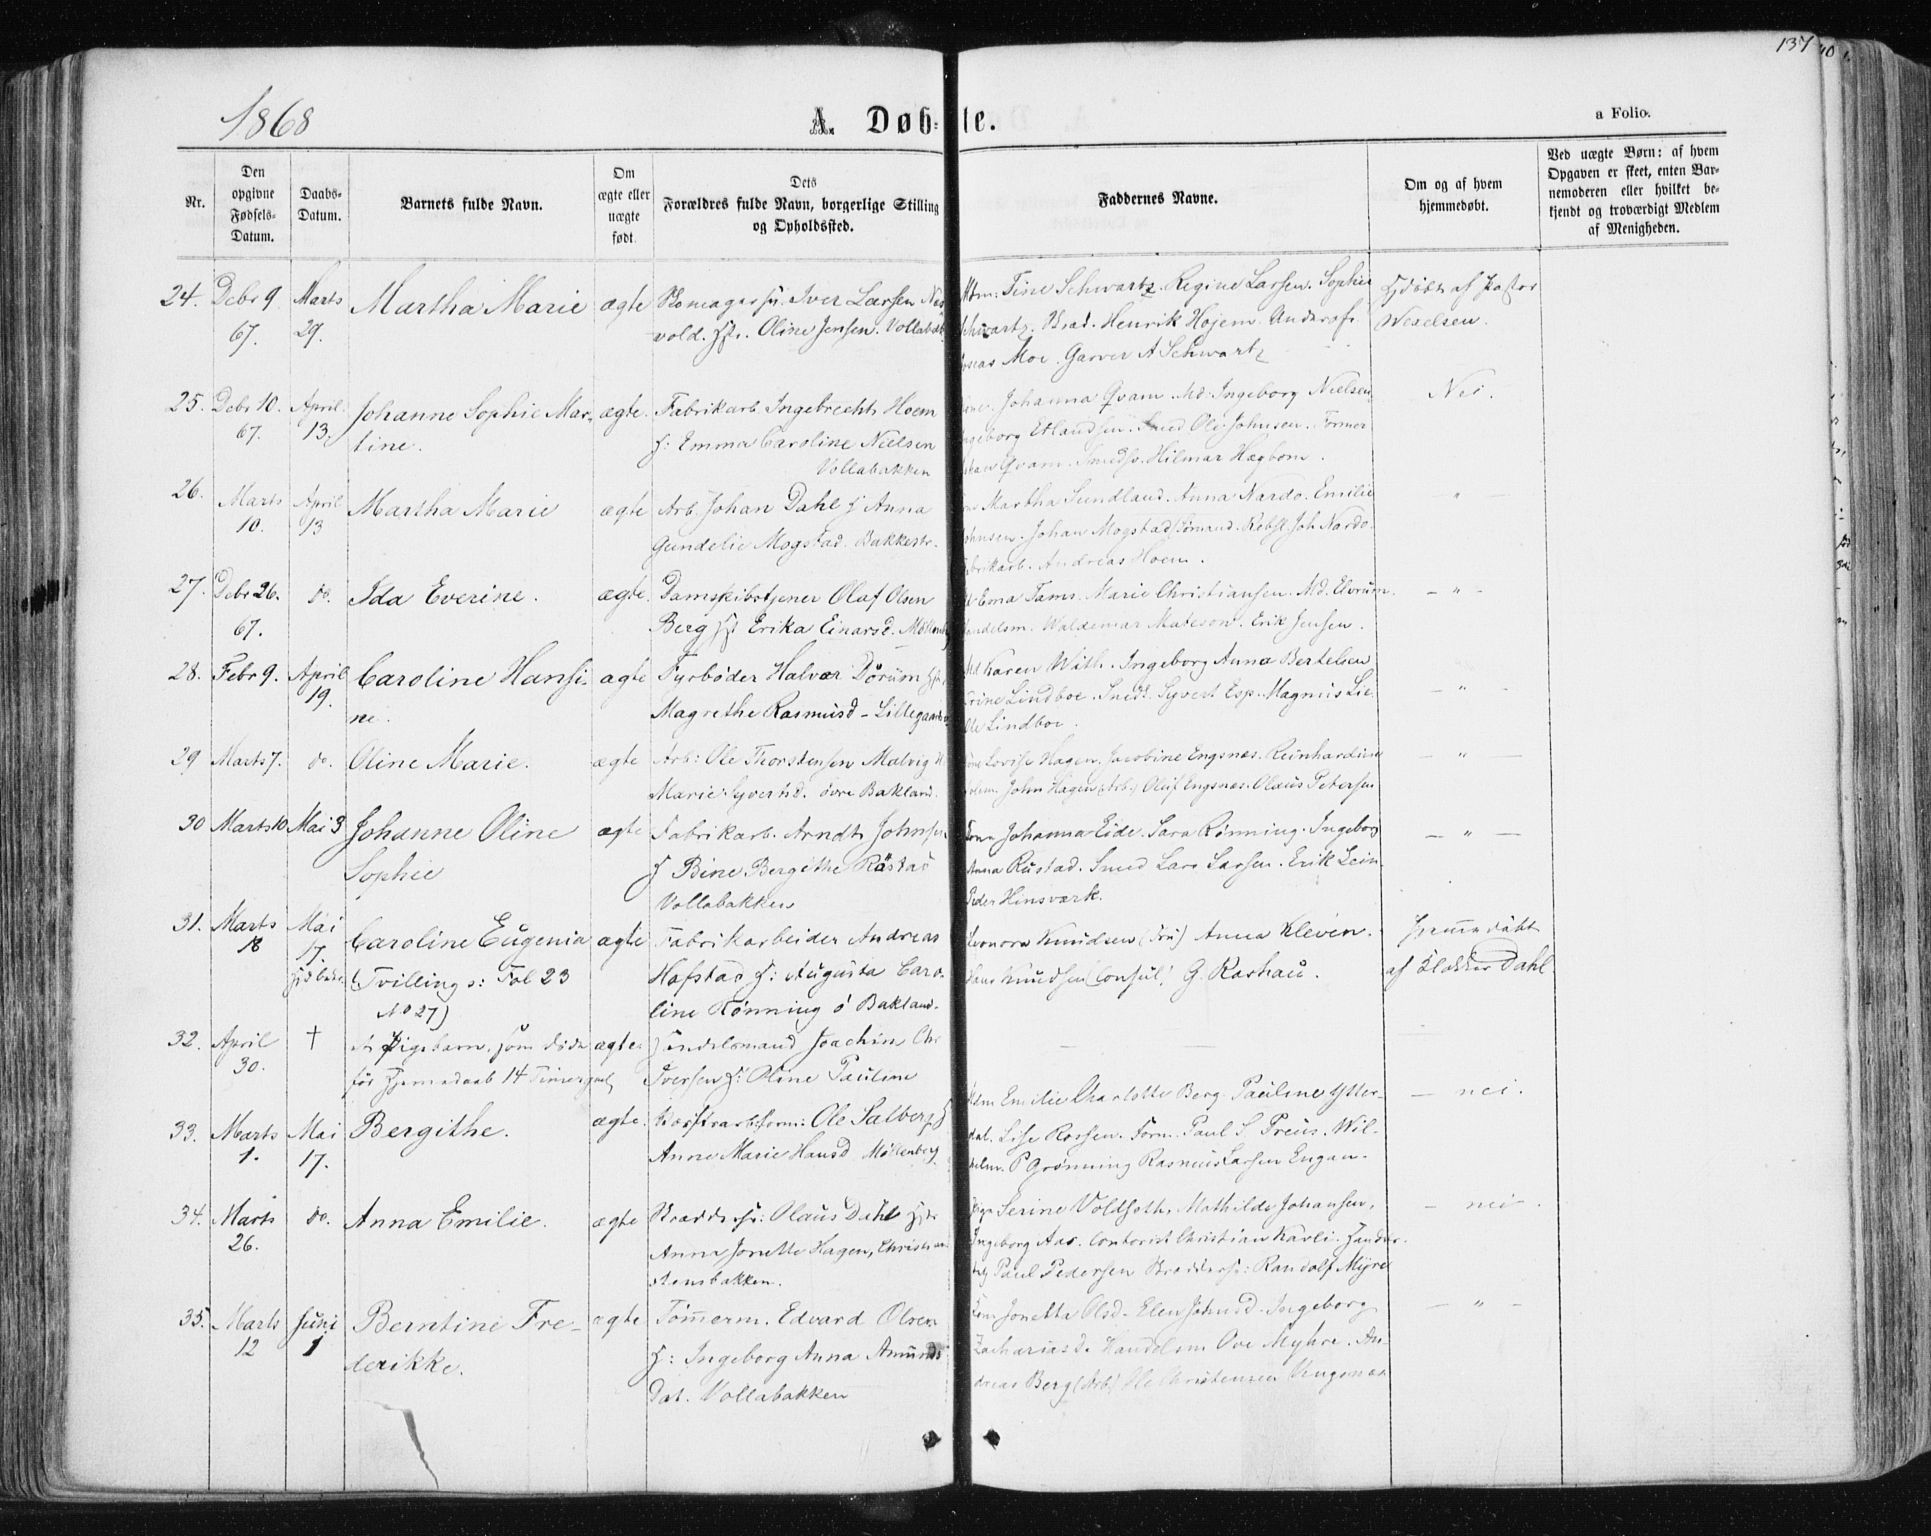 137
1868
A. Døbte.
a Folio.
Nr.
Den opgivne Fødsels-Datum.
Daabs-Datum.
Barnets fulde Navn.
Om ægte eller uægte født.
Dets Forældres fulde Navn, borgerlige Stilling og Opholdssted.
Faddernes Navne.
Om og af hvem hjemmedøbt.
Ved uægte Børn: af hvem Opgaven er skeet, enten Barnemoderen eller hvilket bekjendt og troværdigt Medlem af Menigheden.
24. Debr 9 67. Marts 29. Martha Marie ægte
Skomagersv. Iver Larsen
vold. Oline Jensen.
Tine Schwartz. Regine Larsen. Sophie
Schwartz. Henrik Højem.
Moe. Garver A Schwartz
Hjdøbt af Pastor
Wexelsen.
25. Debr 10. 67. April 13. Johanne Sophie Mar-
tine.
ægte. Fabrikarb. Ingebrecht Hoem
H: Emma Caroline Nielsen
Vollabakken
Johanna Qvam. Md: Ingeborg Nielsen
Ingeborg Smed Ole Johnsen. Former
Qvam. Smedsv. Hilmar Hagbom.
Nei.
26. Marts 10. April 13 Martha Marie ægte
Arb. Johan Dahl H Anna
Gundelie Mogstad. Bakkestr.
Martha Sundland. Anna Nardo. Emilie
Johnsen. Johan Mogstad Joh Nardo.
Fabrikarb. Andreas Hoem.
— " —
27. Debr 26. 67. do. Ida Everine. ægte.
Damskibstjener Olaf Olsen
Berg Erika Einarsd.
Tams. Marie Christiansen. Md. Elvrum.
Handelsm. Waldemar Mateson. Erik Jensen.
— " —
28. Febr 9. April 19. Caroline Hansi-
ne.
ægte Fyrbøder Halvar Dørum
Magrethe Rasmusd – Lillegaardsb
Md Karen With. Ingeborg Anna Bertelsen
Trine Lindboe. Syvert Esp. Magnus Lie.
Ole Lindboe.
— " —
29 Marts 7. do. Oline Marie. ægte
Arb: Ole Thorstensen Malvig H
Marie Syvertsd. øvre Bakland.
Lovise Hagen. Jacobine Engsnes. Reinhardine
John Hagen (Arb.) Oluf Engsnes. Olaus Petersen
— " —
30 Marts 10 Mai 3 Johanne Oline
Sophie
ægte Fabrikarb. Arndt Johnsen
H Bine Bergithe Råstad
Vollabakken
Johanna Eide. Sara Rønning. Ingeborg
Anna Rustad. Smed Lars Larsen. Erik Lein
Peder Hinsværk.
— " —
31. Marts 18 Mai 17. Caroline Eugenia
(Tvilling s: Fol 23
No 27)
ægte Fabrikarbeider Andreas
Hofstad H: Augusta Caro-
line Rønning ø Bakland.
Leonora Knudsen (Fru) Anna Kleven.
Hans Knudsen (Consul) G. Rashau.
Hjemmedøbt
af Klokker Dahl.
32. April 30. † et Pigebarn, som døde
før Hjemmedaab 14 Timer
ægte. Joachim Chr
Iversen H: Oline Pauline
33. Marts 1. Mai 17. Bergithe. ægte.
Ole Salberg H
Anne Marie Hansd Møllenberg
Emilie Charlotte Berg. Pauline Ytter-
dal. Lise Rossen. Paul S Preus. Wil-
helm. P Grønning Rasmus Larsen Engan.
— nei.
34. Marts 26. do. Anna Emilie. ægte
Skræddersv: Olaus Dahl
Anna Jonette Hagen, Christian
stensbakken.
Serine Voldseth. Mathilde Johansen,
Ingeborg Aas. Contorist Christian Kavli.
Paul Pedersen Skræddersv: Randolf Myre
— nei —.
35. Marts 12 Juni 1 Berntine Fre-
derikke.
ægte Tømmerm. Edvard Olsen
H: Ingeborg Anna Amunds
Dat. Vollabakken
Jonetta Olsd – Elen Johnsd. Ingeborg
Zachariasd. Handelsm Ove Myhre. An-
dreas Berg (Arb) Ole Christensen
— " —